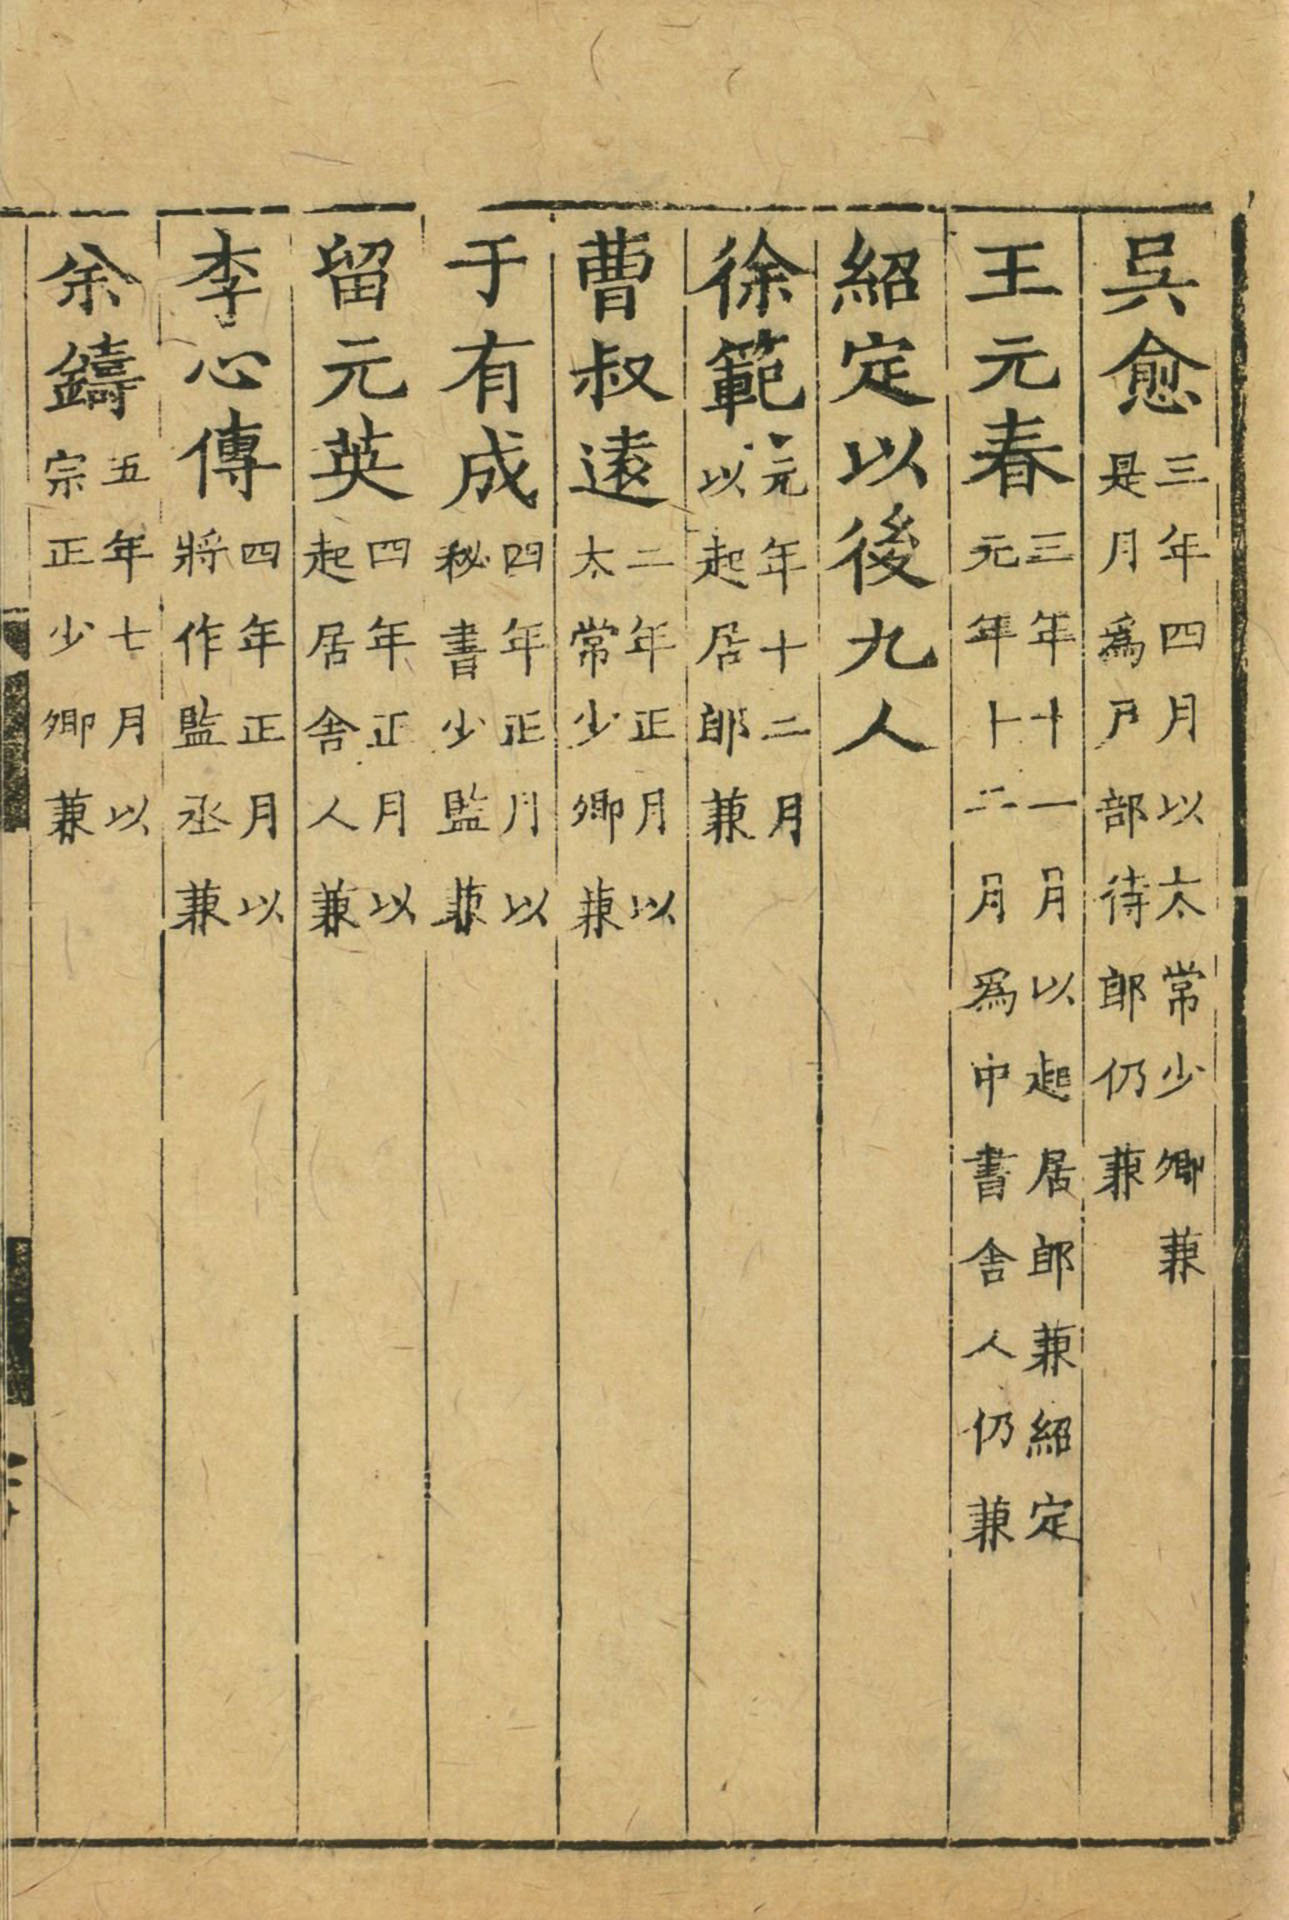 吳愈三年四月以太常少卿兼是月為戶部待郎仍兼
王元春三年十一月以起居郎兼紹定元年十二月為中書舍人仍兼
紹定以後九人
徐範元年十二月以起居郎兼
曹叔遠二年正月以太常少卿兼
于有成四年正月以秘書少監兼
留元英四年正月以起居舍人兼
李心傳四年正月以將作監丞兼
余鑄五年七月以宗正少卿兼